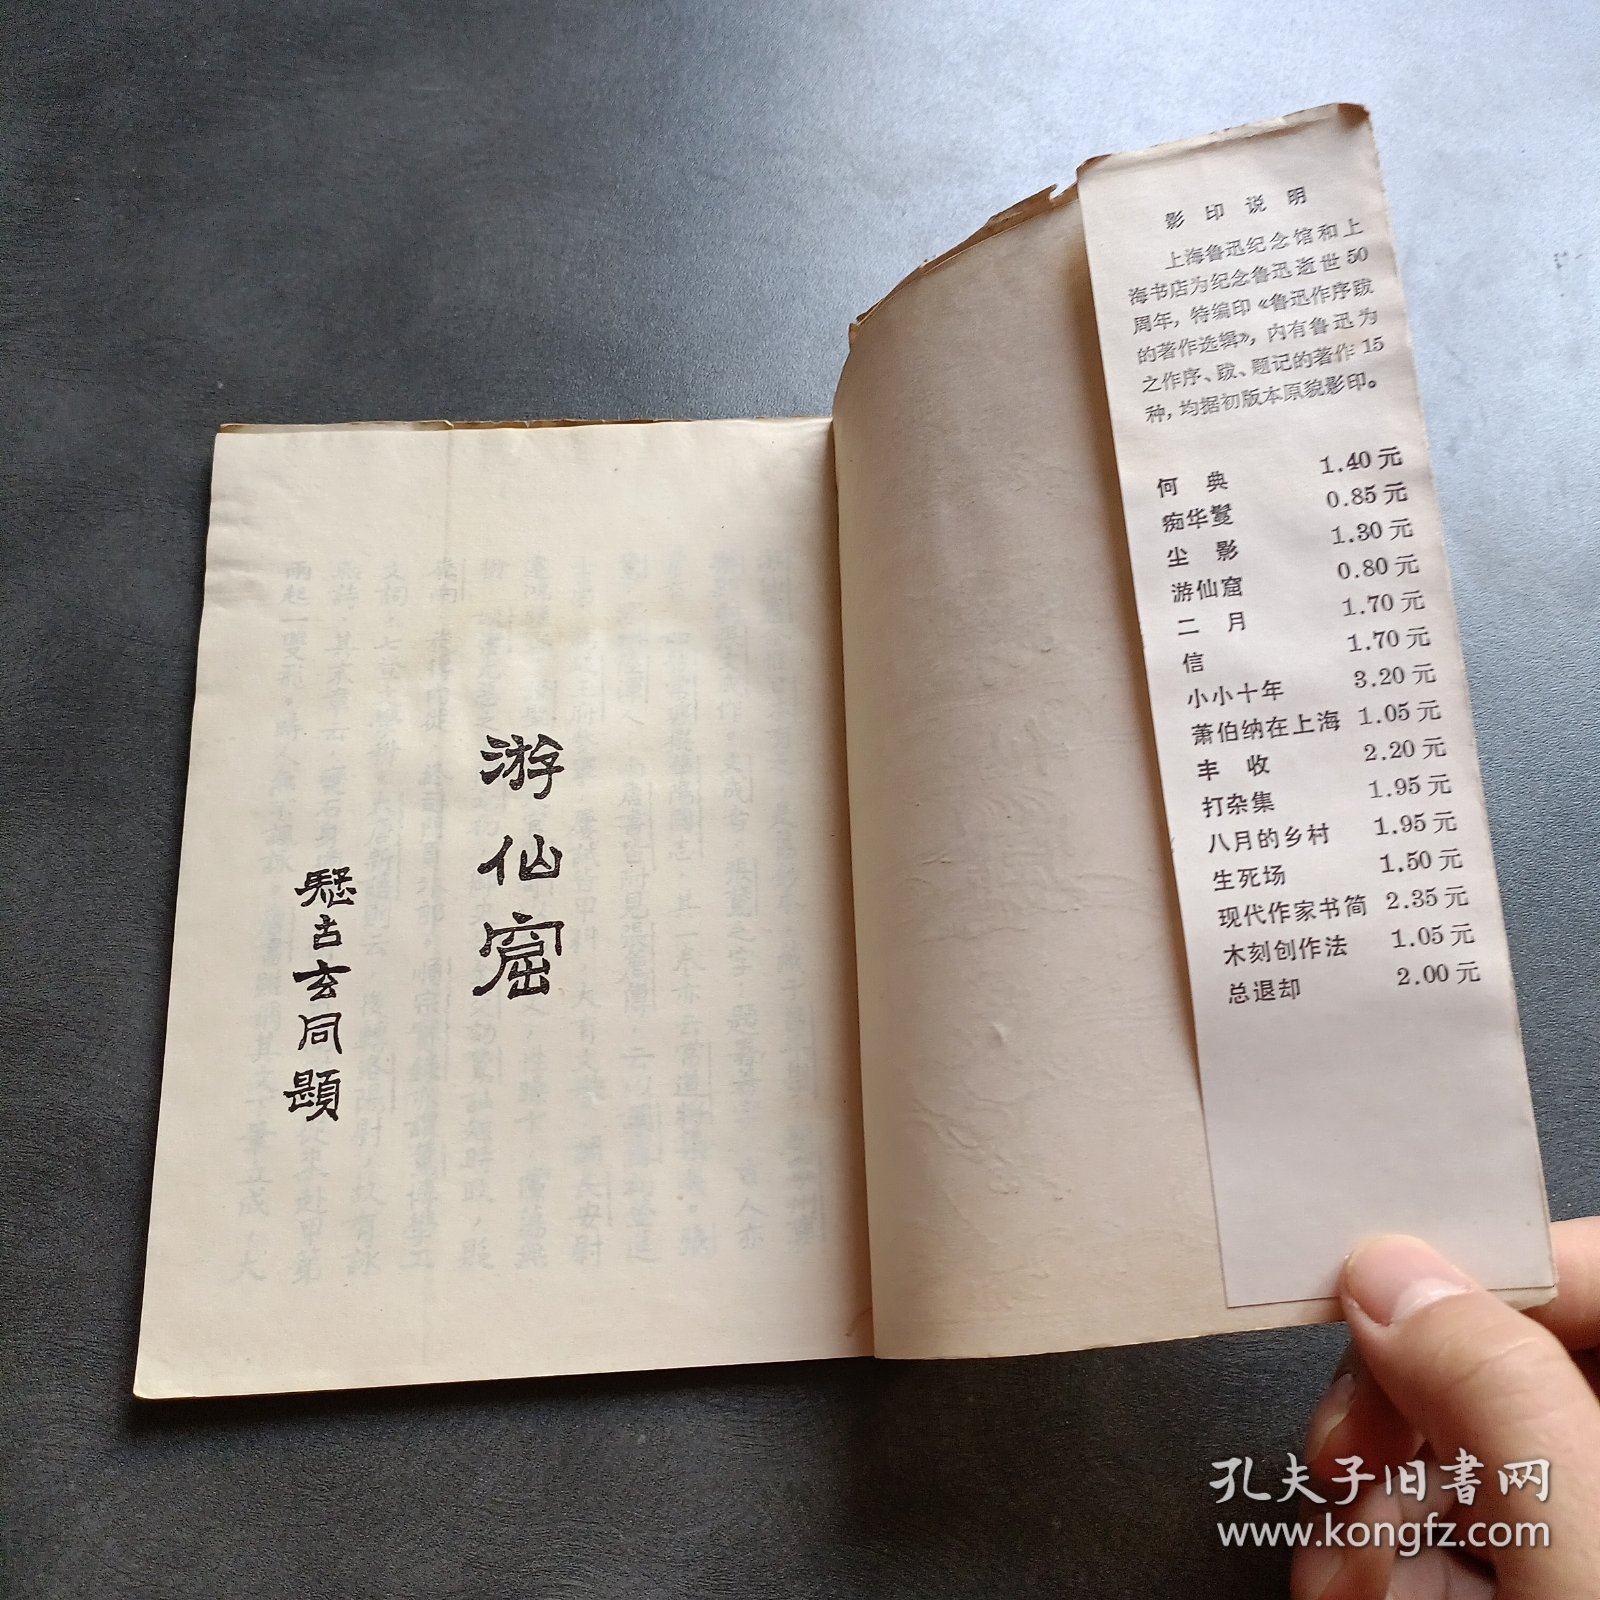 游仙窟
疑古玄同题
影印说明
上海鲁迅纪念馆和上
海书店为纪念鲁迅逝世50
周年，特编印《鲁迅作序跋
的著作选辑》，内有鲁迅为
之作序、跋、题记的著作15
种，均据初版本原貌影印。
何典 1.40元
痴华鬘 0.85元
尘影 1.30元
游仙窟 0.80元
二月 1.70元
信 1.70元
小小十年 3.20元
萧伯纳在上海 1.05元
丰收 2.20元
打杂集 1.95元
八月的乡村 1.95元
生死场 1.50元
现代作家书简 2.35元
木刻创作法 1.05元
总退却 2.00元
孔夫子旧書网
www.kongfz.com